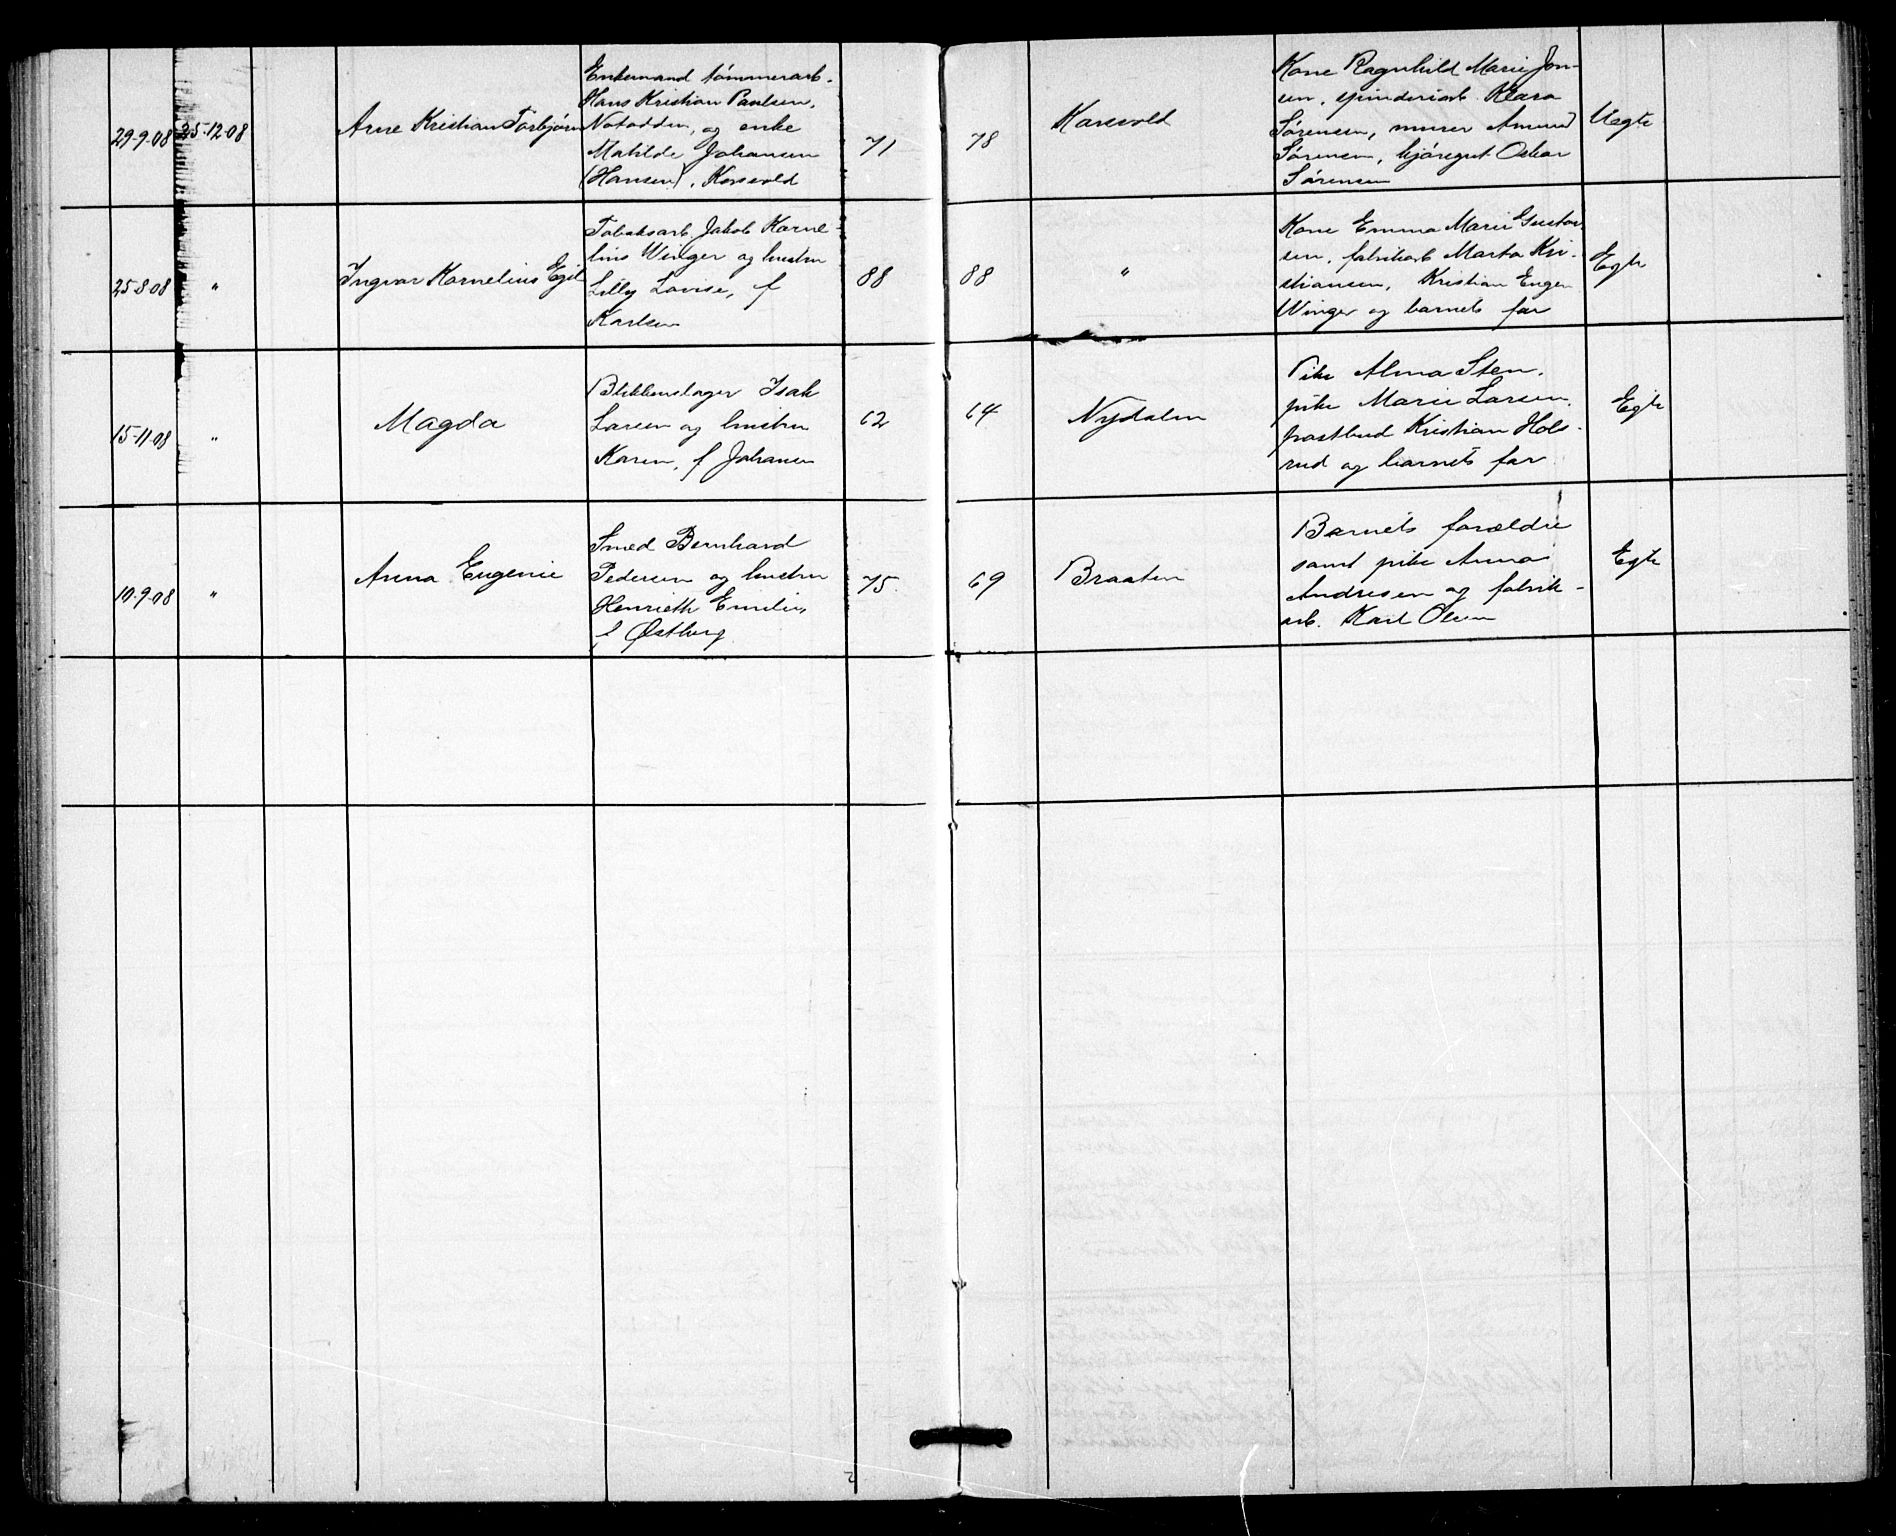 29-9-08
25-12-08
Arne Kristian Torbjørn
Enkemand tømmerarb.
Hans Kristian Paulsen,
Notodden, og enke
Matilde Johansen
(Hansen), Korsvold
71
78
Korsvold
Kone Ragnhild Marie Jon-
sen, spinderiarb. Klara
Sørensen, murer Amund
Sørensen, kjøregut Oskar
Sørensen
Uegte
25-8-08
"
Ingvar Kornelius Egil
Tobaksarb. Jakob Korne-
lius Winger og hustru
Lilly Lovise, f
Karlsen
88
88
"
Kone Emma Marie Gustav
sen, fabrikarb Marta Kri-
stiansen, Kristian Eugen
Winger og barnets far
Egte
15-11-08
"
Magda
Blikkenslager Isak
Larsen og hustru
Karen, f Johansen
62
64
Nydalen
Pike Alma Sten,
pike Marie Larsen,
postbud Kristian Hols-
rud og barnets far
Egte
10-9-08
"
Anna Eugenie
Smed Bernhard
Pedersen og hustru
Henriette Emilie,
f Østberg
75
69
Braaten
Barnets forældre
samt pike Anna
Andresen og fabrik-
arb. Karl Olsen
Egte